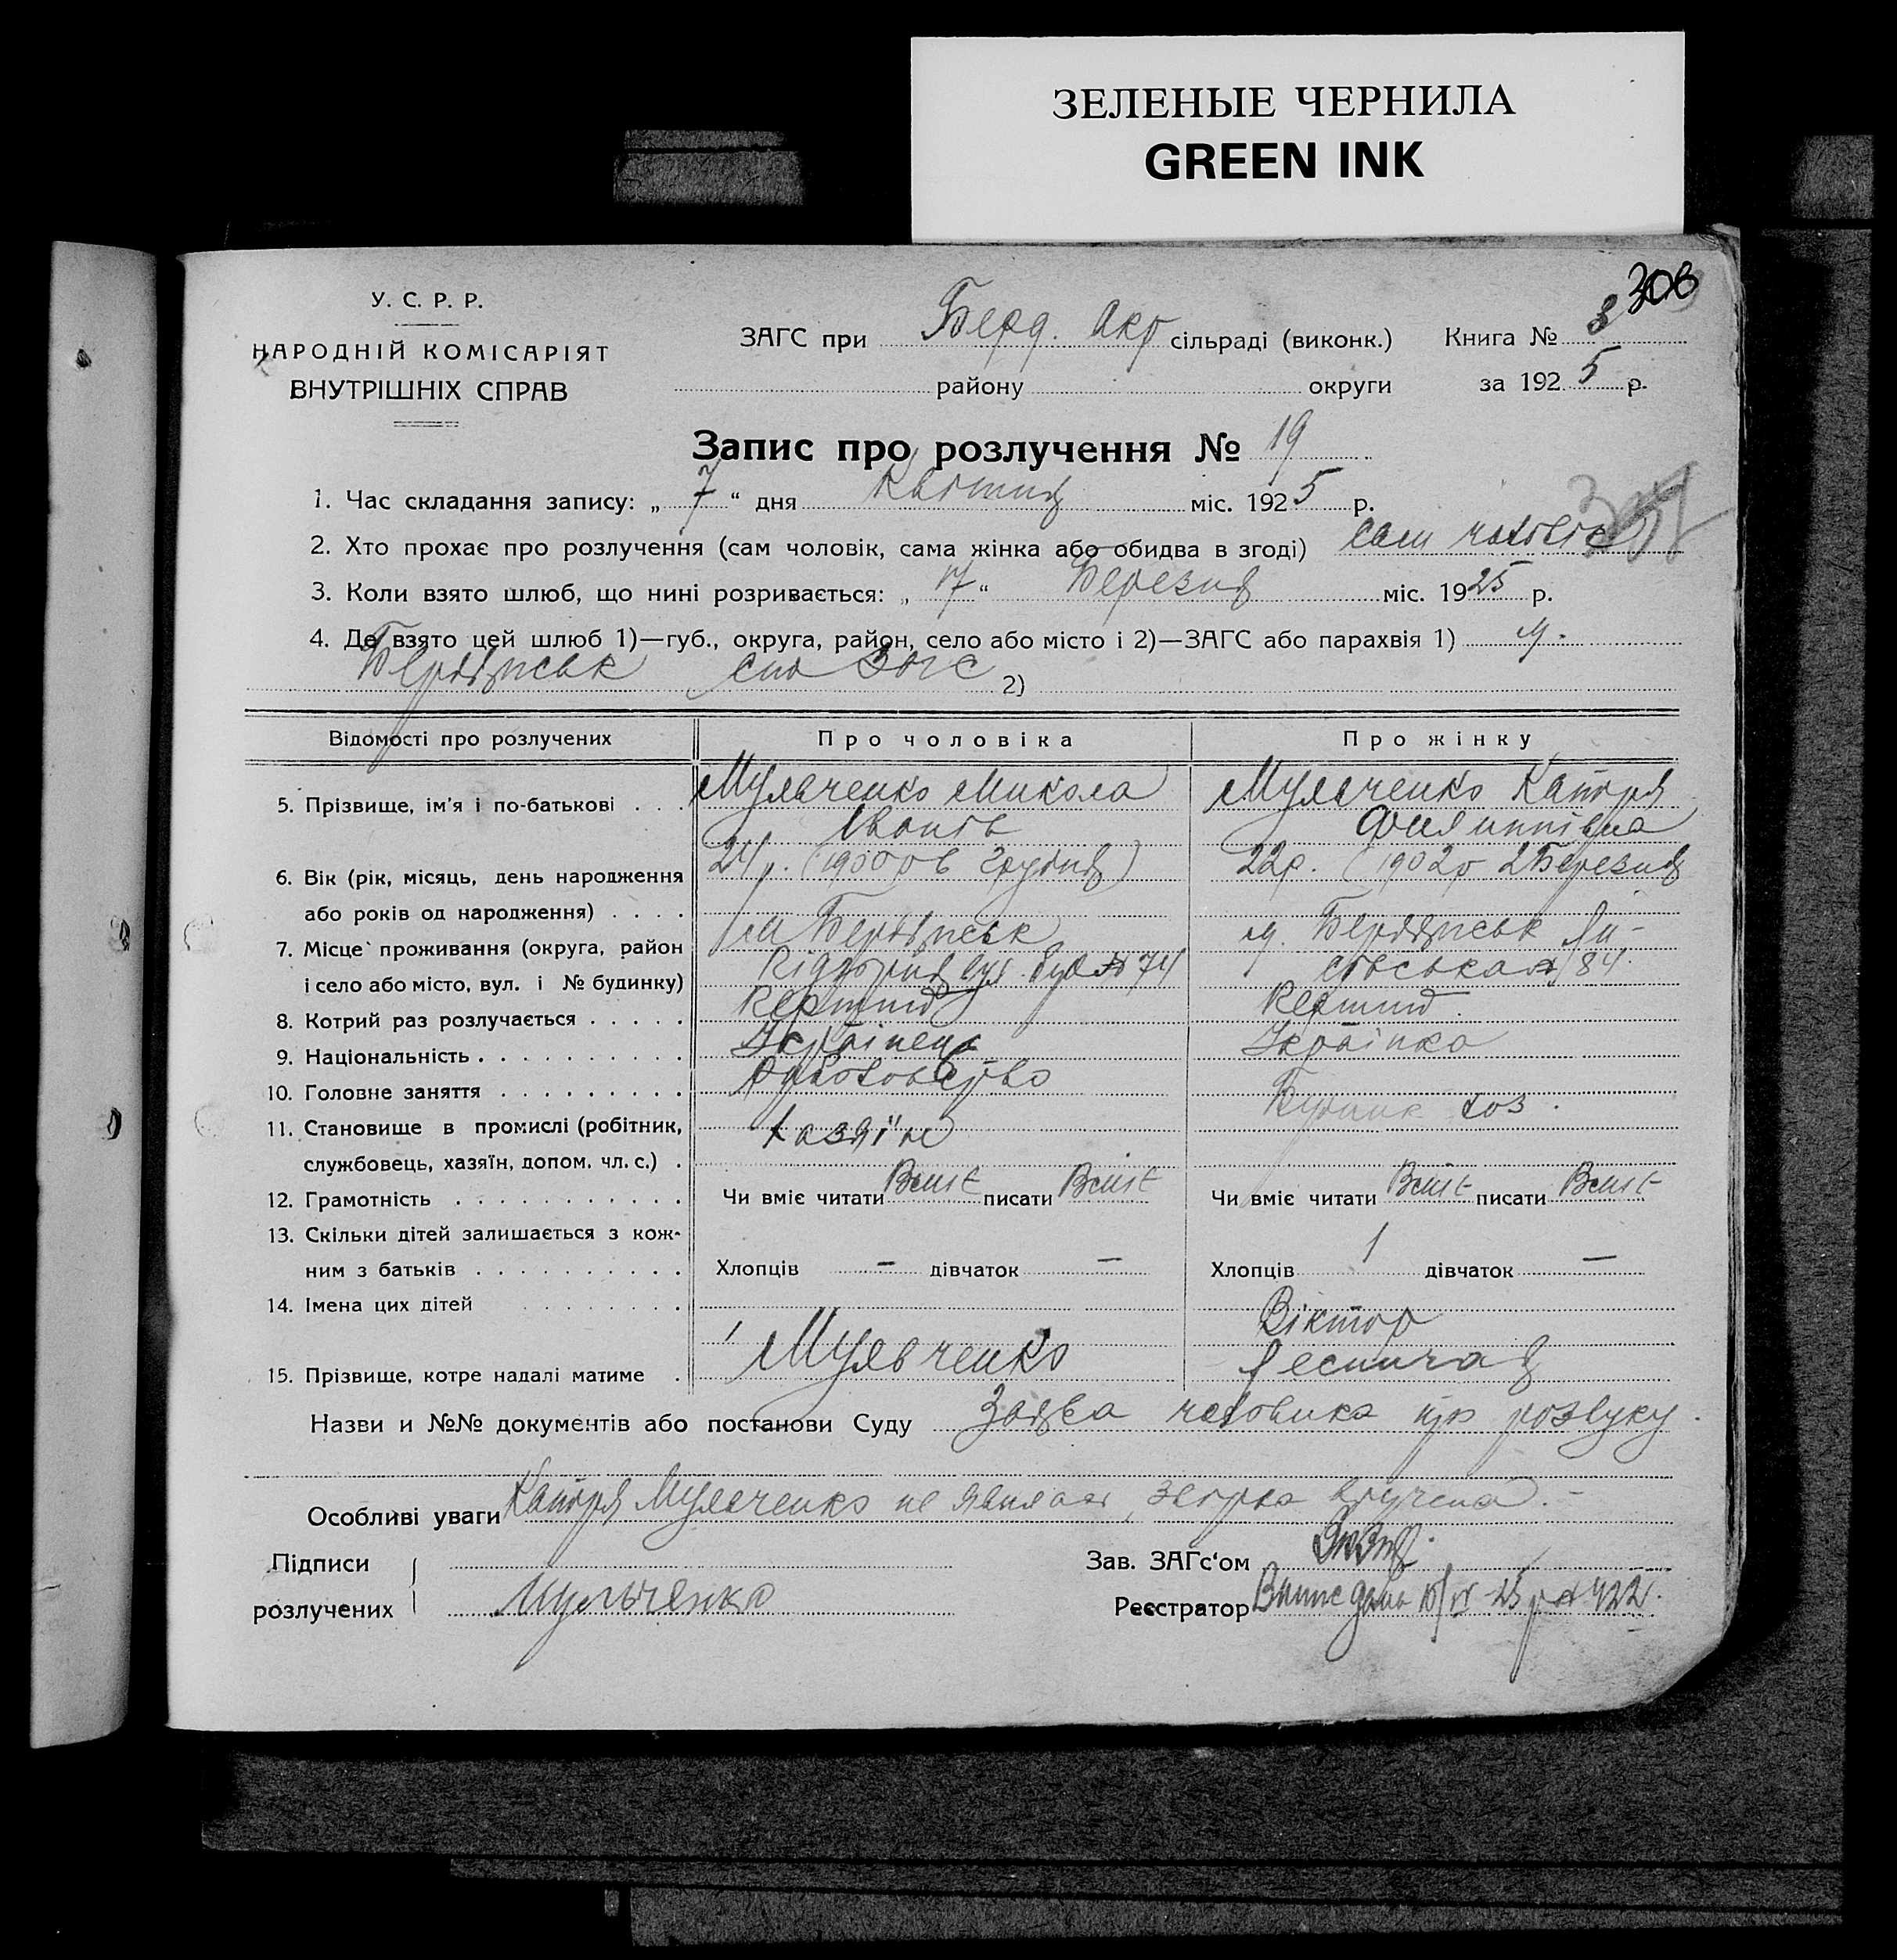 ЗЕЛЕНЫЕ ЧЕРНИЛА
GREEN INK
308
У. С. Р. Р.
НАРОДНІЙ КОМІСАРІЯТ
ВНУТРІШНІХ СПРАВ
ЗАГС при Берд. Окр сільраді (виконк.) Книга № 3
району округи за 1925 р.
Запис про розлучення № 19
1. Час складання запису: „ 7 “ дня Квітня міс. 1925 р.
2. Хто прохає про розлучення (сам чоловік, сама жінка або обидва в згоді) Сам чоловік
3. Коли взято шлюб, що нині розривається: „ 17 “ Березня міс. 1925 р.
4. Де взято цей шлюб 1)—губ., округа, район, село або місто і 2)—ЗАГС або парахвія 1) м.
Бердянськ Загс 2)
Відомості про розлучених Про чоловіка Про жінку
5. Прізвище, ім'я і по-батькові . . . Мульченко Микола Мульченко Катря
Іванів Филиппівна
6. Вік (рік, місяць, день народження 24 р. (1900 р 6 грудня) 22 р. (1902 р 2 Березня
або років од народження) . . . .
7. Місце проживання (округа, район м Бердянськ м. Бердянськ Лі-
і село або місто, вул. і № будинку) вул. буд № 74 84
8. Котрий раз розлучається . . . . . Перший Перший
9. Національність . . . . . . . . . . Українець Українка
10. Головне заняття . . . . . . . . .
11. Становище в промислі (робітник, Хазяїн хоз.
службовець, хазяїн, допом. чл. с.) .
12. Грамотність . . . . . . . . . . . Чи вміє читати Вміє писати Вміє Чи вміє читати Вміє писати Вміє
13. Скільки дітей залишається з кож-
ним з батьків . . . . . . . . . . Хлопців — дівчаток — Хлопців 1 дівчаток —
14. Імена цих дітей . . . . . . . . Віктор
15. Прізвище, котре надалі матиме . Мульченко Лесничая
Назви и №№ документів або постанови Суду Заява чоловіка про розлуку.
Особливі уваги Катря Мульченко не явилась, вручена. —
Підписи Зав. ЗАГс‘ом
розлучених Мульченко Реєстратор Випис дана 10/VI-25 р № 422.